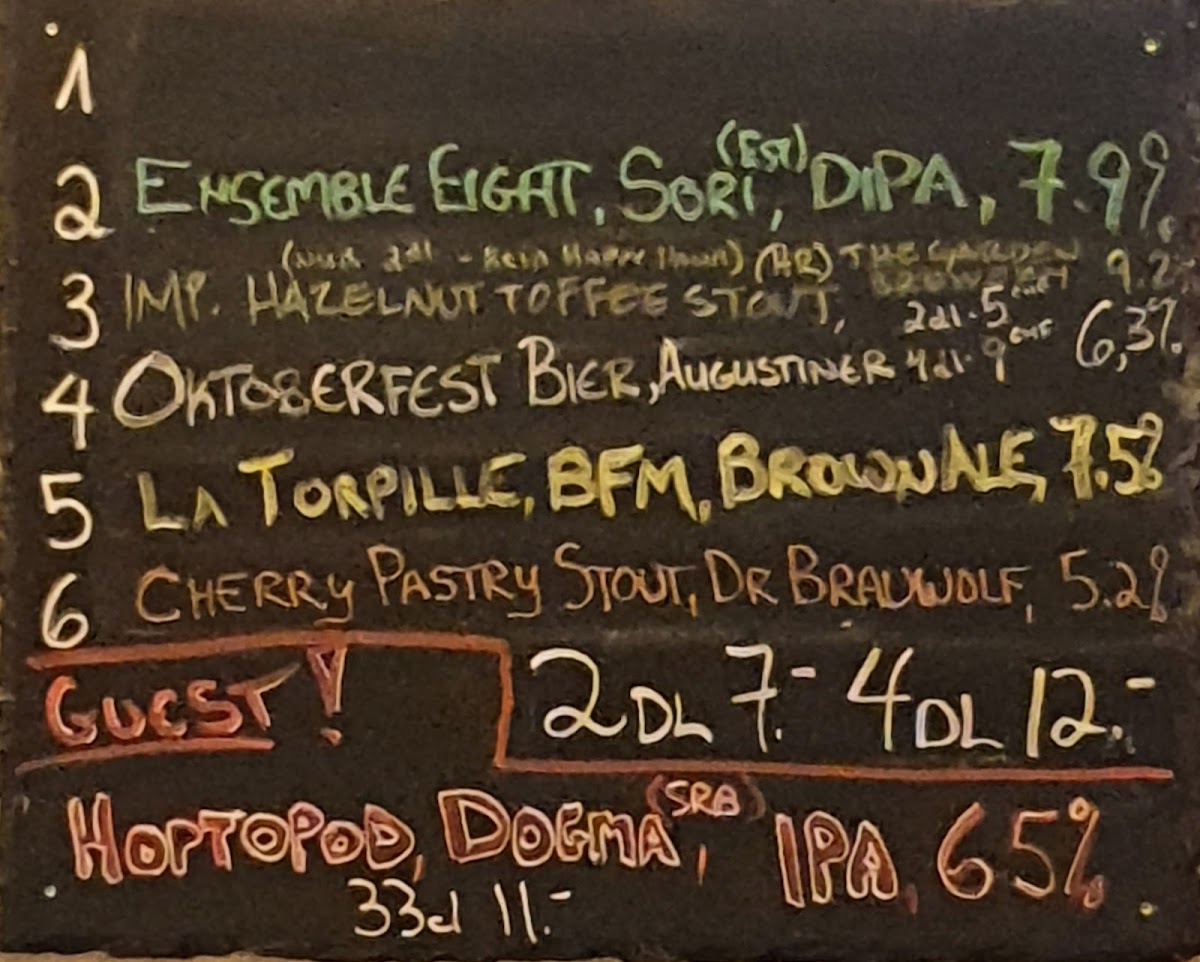 1
2 ENSEMBLE EIGHT, SORI (EST), DIPA, 7.9%
(NUR 2dl - KEIN HAPPY HOUR) (HR) THE GARDEN BREWERY 9.2
3 IMP. HAZELNUT TOFFEE STOUT,
2dl. 5 CHF
4 OKTOBERFEST BIER, AUGUSTINER 4dl. 9 CHF 6,3%
5 LA TORPILLE, BFM, BROWN ALE, 7.5%
6 CHERRY PASTRY STOUT, DR BRAUWOLF, 5.2%
GUEST!
2DL 7.- 4DL 12.-
HOPTOPOD, DOGMA (SRB), IPA, 6.5%
33cl 11.-